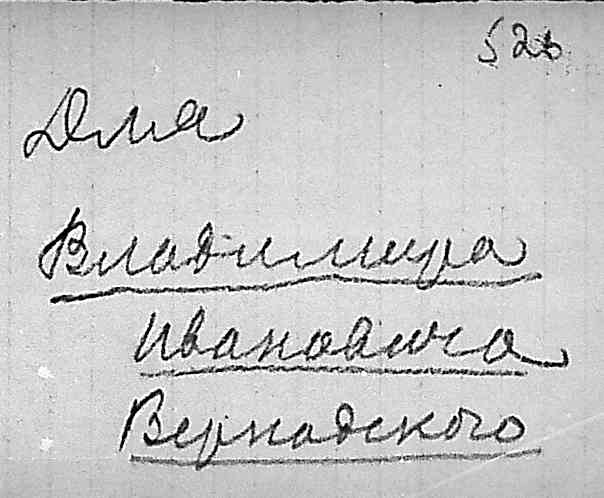 52в
Для
Владимира
Ивановича
Вернадского